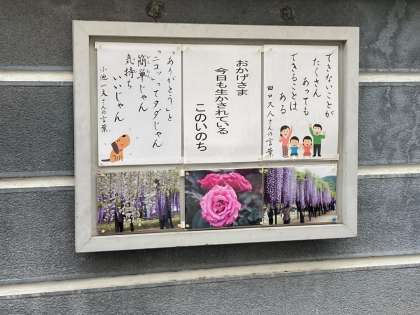 できないことが
たくさん
あっても
できることは
ある
田口久人さんの言葉
おかげさま
今日も生かされている
このいのち
ありがとうと
「ニコッ」ってタダじゃん
簡単じゃん
気持ち
いいじゃん
小池一夫さんの言葉